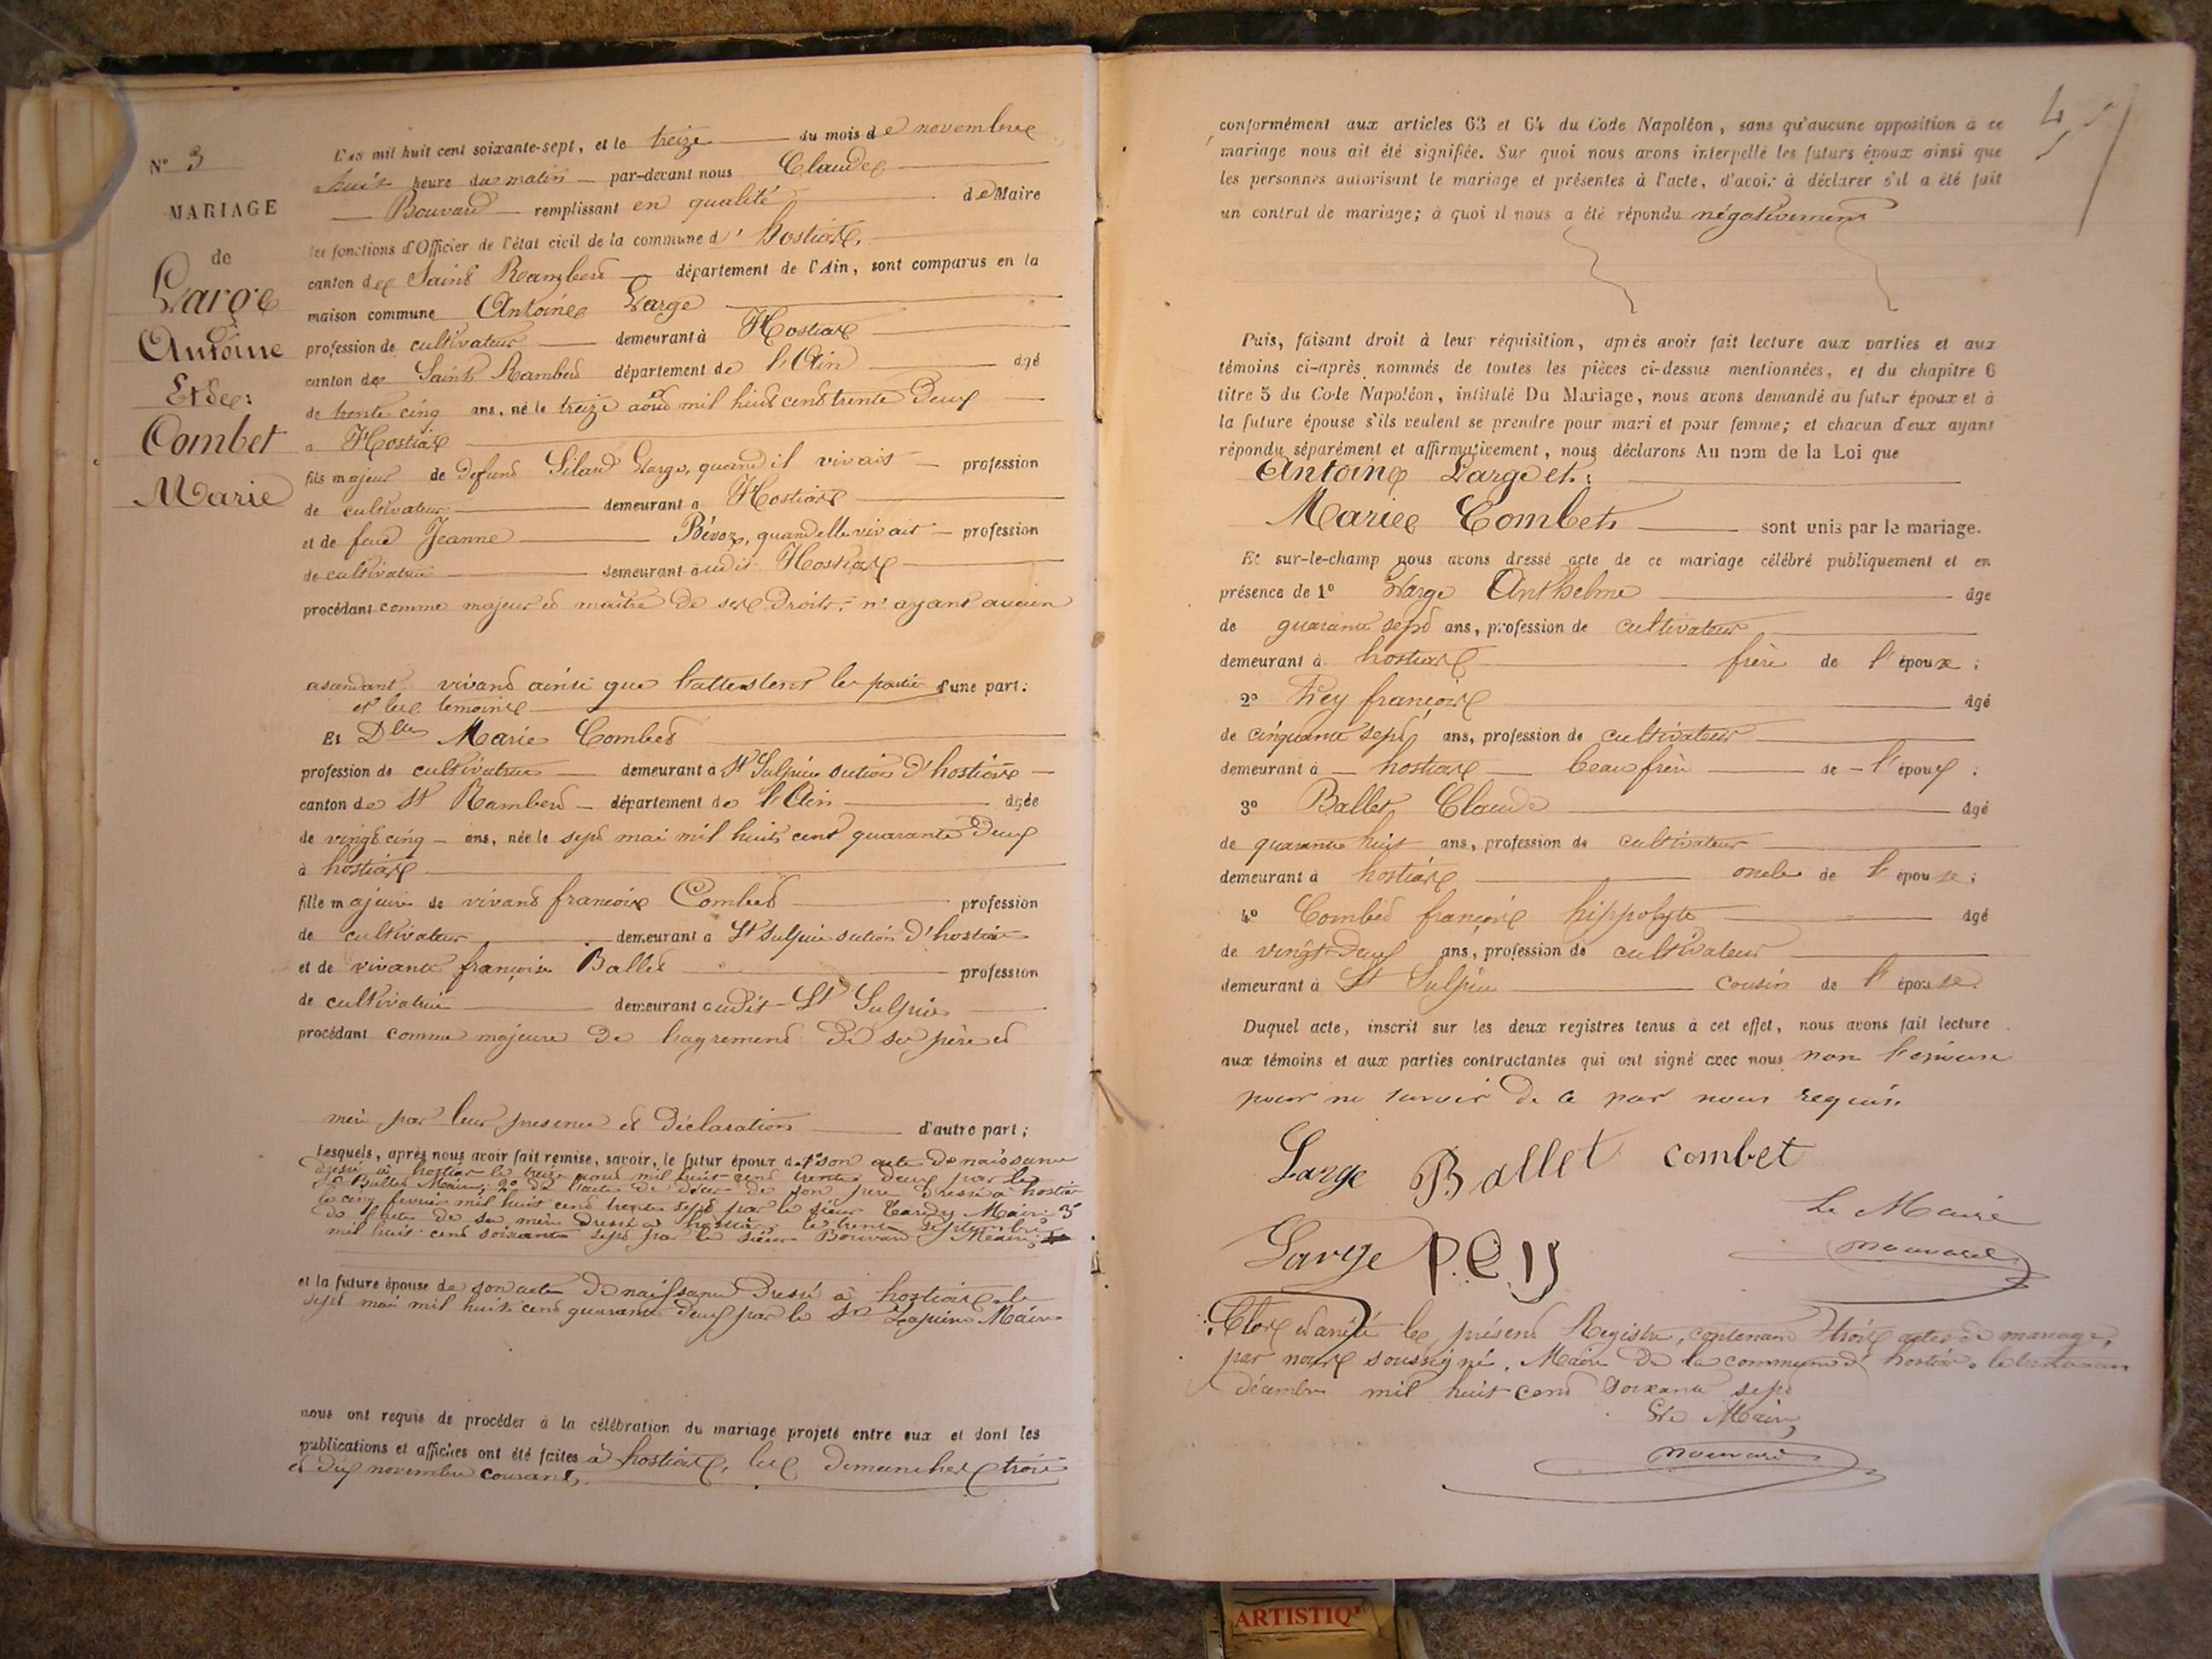 N° 3
MARIAGE
de
Large
Antoine
Et de:
Combet
Marie
L'an mil huit cent soixante-sept, et le treize du mois de novembre
huit heure du matin par-devant nous Claude
Bouvard remplissant en qualité de Maire
les fonctions d'Officier de l'état civil de la commune d'hostiax
canton de Saint Rambert département de l'Ain, sont comparus en la
maison commune Antoine Large
profession de cultivateur demeurant à Hostiax
canton de Saint Rambert département de l'Ain âgé
de trente cinq ans, né le treize août mil huit cent trente deux
a Hostiax
fils majeur de défunt Large, quand il vivait profession
de cultivateur demeurant a Hostiax
et de feue Jeanne Bévoz, quand elle vivait profession
de cultivatrice demeurant audit Hostiax
procédant comme majeur et maître de ses droits, n'ayant aucun
ascendant vivant ainsi que l'attestent les parties d'une part:
et les temoins
Et Dlle Marie Combet
profession de cultivatrice demeurant à St Sulpice section d'hostiax
canton de St Rambert département de l'Ain âgée
de vingt cinq ans, née le sept mai mil huit cent quarante deux
à hostiax
fille majeure de vivant françois Combet profession
de cultivateur demeurant a St Sulpice section d'hostiax
et de vivante françoise Ballet profession
de cultivatrice demeurant audit St Sulpice
procédant comme majeure de l'agrement de ses père et
mère par leur presence et déclaration d'autre part;
Lesquels, après nous avoir fait remise, savoir, le futur époux de 1° son acte de naissance
dressé à hostiax le treize août mil huit cent trente deux par le
Sr Ballet Maire; 2° de l'acte de décès de son père dressé à hostiax
le cinq fevrier mil huit cent trente sept par le sieur Tardy Maire; 3°
de l'acte de sa mère dressé à hostiax le trente septembre
mil huit cent soixante sept par le sieur Bouvard Maire;
et la future épouse de son acte de naissance dressé à hostiax le
sept mai mil huit cent quarante deux par le Sr Maire
nous ont requis de procéder à la célébration du mariage projeté entre eux et dont les
publications et affiches ont été faites à hostiax, les dimanches trois
et dix novembre courant,
conformément aux articles 63 et 64 du Code Napoléon, sans qu'aucune opposition a ce
mariage nous ait été signifiée. Sur quoi nous avons interpellé les futurs époux ainsi que
les personnes autorisant le mariage et présentes à l'acte, d'avoir à déclarer s'il a été fait
un contrat de mariage; à quoi il nous a été répondu négativement
Puis, faisant droit à leur réquisition, après avoir fait lecture aux parties et aux
témoins ci-après nommés de toutes les pièces ci-dessus mentionnées, et du chapitre 6
titre 5 du Code Napoléon, intitulé Du Mariage, nous avons demandé au futur époux et à
la future épouse s'ils veulent se prendre pour mari et pour femme; et chacun d'eux ayant
répondu séparément et affirmativement, nous déclarons Au nom de la Loi que
Antoine Large et:
Marie Combet sont unis par le mariage.
Et sur-le-champ nous avons dressé acte de ce mariage célébré publiquement et en
présence de 1° Large Anthelme âgé
de quarante sept ans, profession de cultivateur
demeurant à hostiax frère de l'époux;
2° Pey françois âgé
de cinquante sept ans, profession de cultivateur
demeurant à hostiax beau frère de l'époux;
3° Ballet Claude âgé
de quarante huit ans, profession de cultivateur
demeurant à hostiax oncle de l'épouse;
4° Combet françois hippolyte âgé
de vingt-deux ans, profession de cultivateur
demeurant à St Sulpice cousin de l'épouse
Duquel acte, inscrit sur les deux registres tenus à cet effet, nous avons fait lecture
aux témoins et aux parties contractantes qui ont signé avec nous non l'épouse
pour ne savoir de ce par nous requis.
Large Ballet combet
Le Maire
Large PEY
Bouvard
Clos et arrêté le présent Registre, contenant trois actes de mariage,
par nous soussigné, Maire de la commune d'hostiax le trente un
décembre mil huit cent soixante sept
Le Maire,
Bouvard
ARTISTIQ